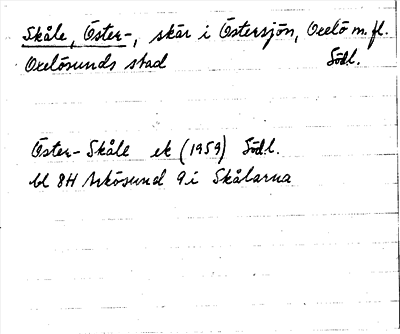 Skåle, Öster-, skär i Östersjön, Oxelö m.fl.
Oxelösunds stad Södl.
Öster-Skåle ek (1959) Södl.
bl 8H Arkösund 9i Skålarna